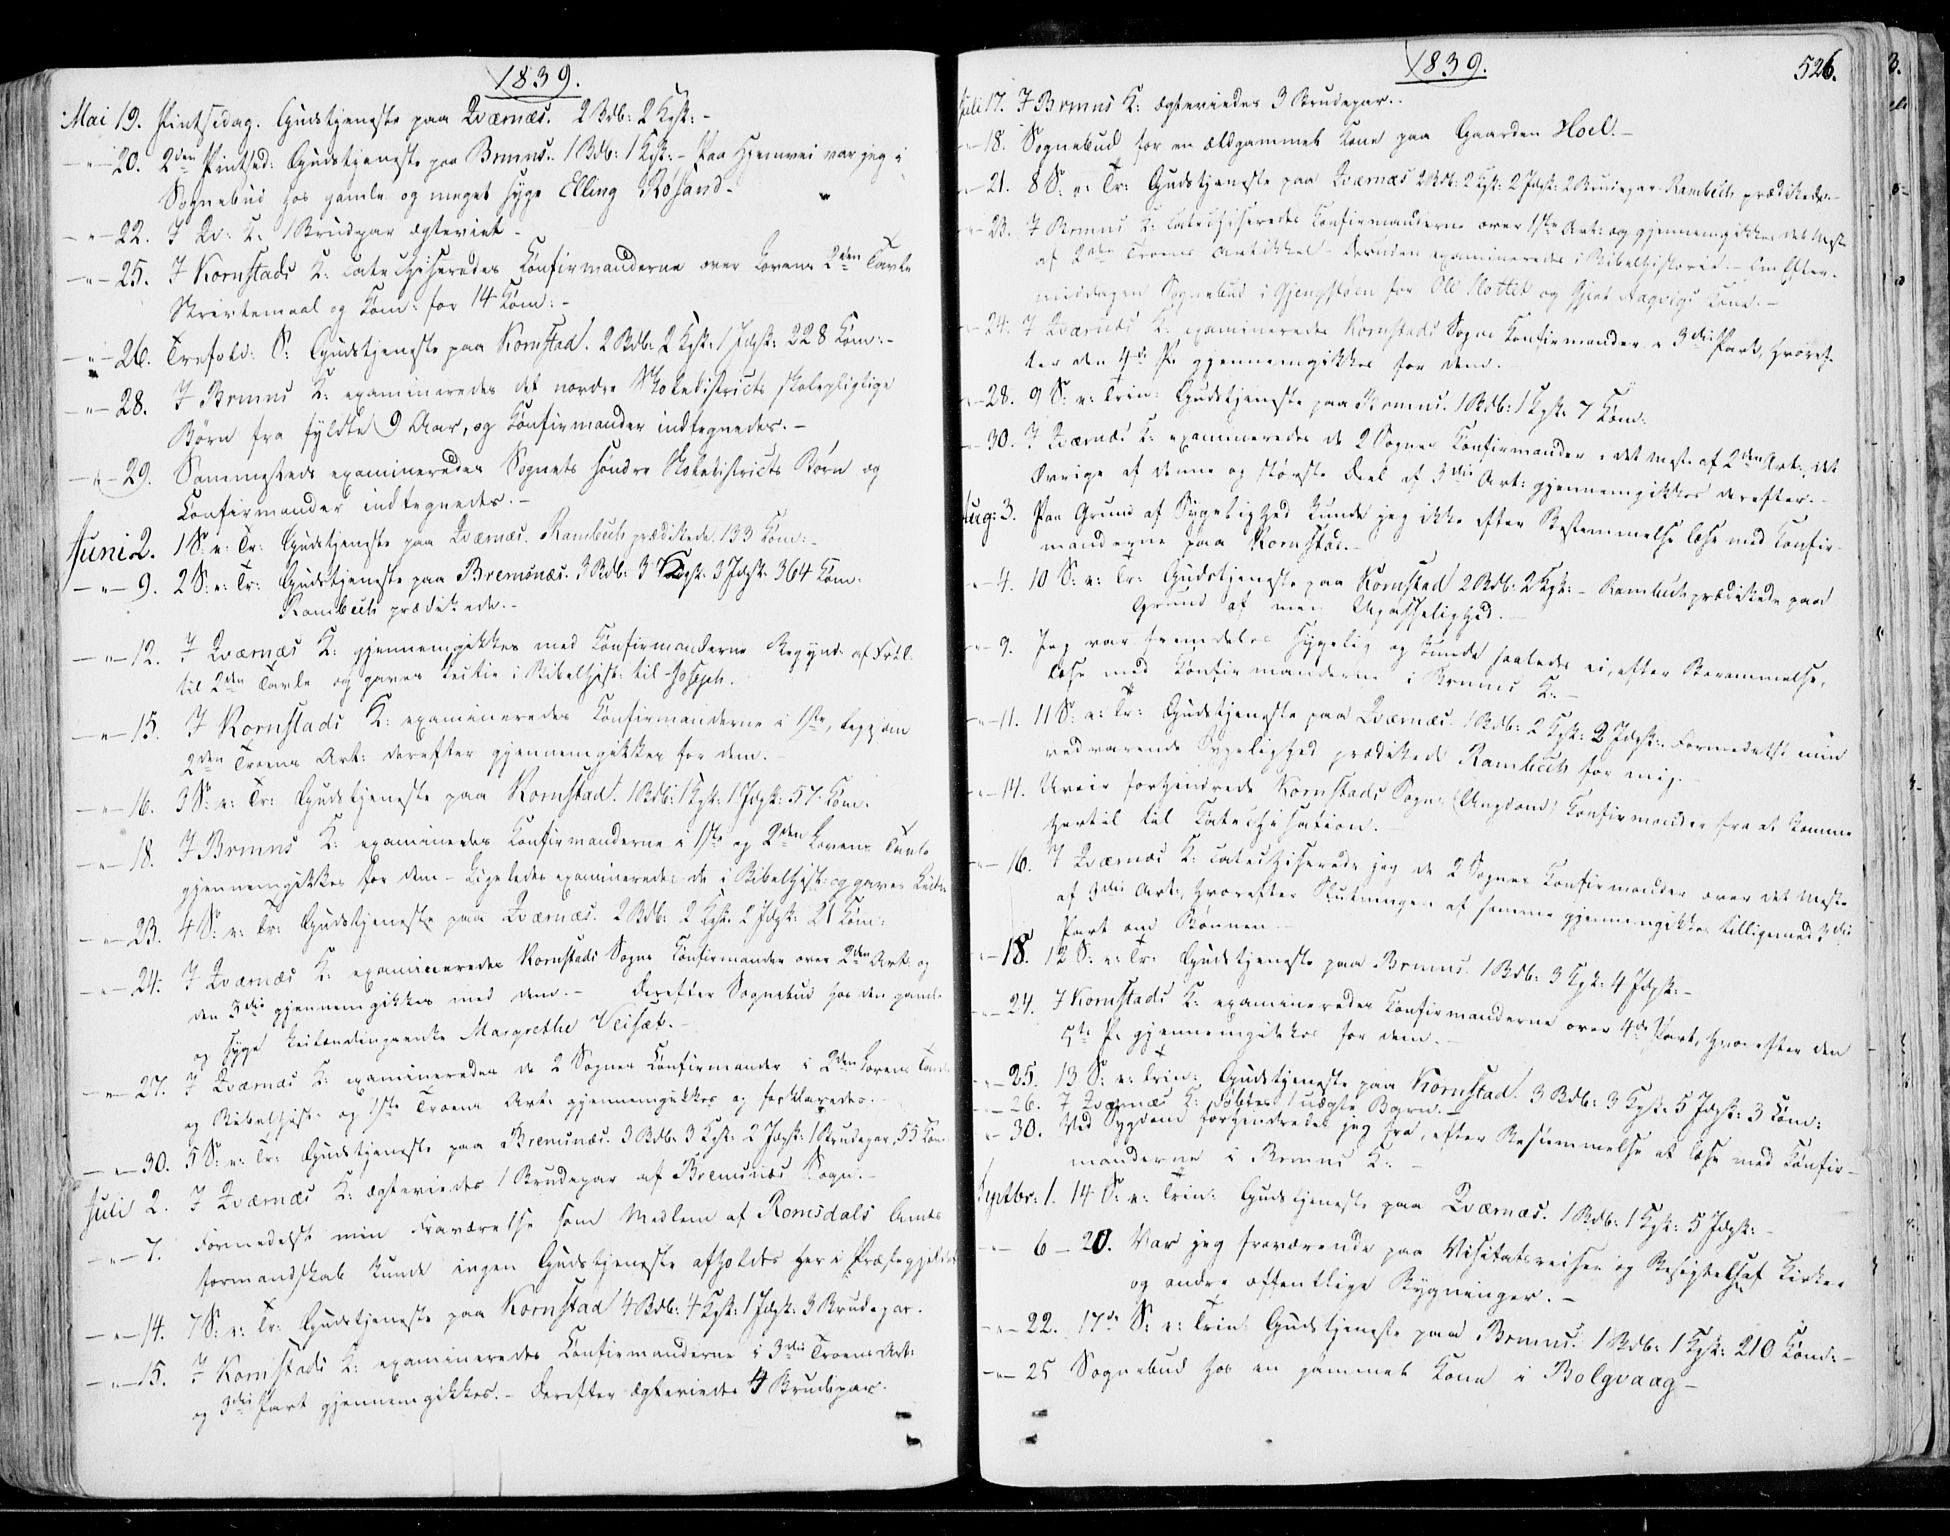 1839.
Mai 19. Pintsedag. Gudstjeneste paa Qværnæs. 2 Bdb: 2 Kgsk: -
- " - 20. 2den Pintsed: Gudstjeneste paa Brmns. 1 Bdb: 1 Kgsk: - Paa Hjemvei var jeg i
Sognebud hos gamle og meget syge Elling Rosand. -
- " - 22. I Qv: K: 1 Brudpar ægteviet -
- " - 25. I Kornstads K: catechiseredes Confirmanderne over Lovens 2den Tavle
Skriftemaal og Com: for 14 Com: -
- " - 26. Trefold: S: Gudstjeneste paa Kornstad. 2 Bdb: 2 Kgsk: 1 Jdgsk: 228 Com: -
- " - 28. I Brmns K: examineredes det nordre Skoledistricts skolepligtige
Børn fra fyldte 9 Aar, og Confirmander indtegnedes. -
- " - 29. Sammesteds examineredes Sognets søndre Skoledistricts Børn og
Confirmander indtegnedes. -
Juni 2. 1 S: e: Tr: Gudstjeneste paa Qværnæs. Rambech prædikede. 133 Com: -
- " - 9. 2 S: e: Tr: Gudstjeneste paa Bremsnæs. 3 Bdb: 3 Kgsk: 3 Jdgsk: 364 Com:
Rambech prædikede. -
- " - 12. I Qværnæs K: gjennemgikkes med Confirmanderne Begynd: af Frkl:
til 2den Tavle og gaves Lectie i Bibelhist: til Joseph.
- " - 15. I Kornstads K: examineredes Confirmanderne i 1ste, ligesom
2den Troens Art: derefter gjennemgikkes for dem.
- " - 16. 3 S: e: Tr: Gudstjeneste paa Kornstad. 1 Bdb: 1 Kgsk: 1 Jdgsk: 57 Com.
- " - 18. I Brmns K: examineredes Confirmanderne i 1ste og 2den Lovens Tavle
gjennemgikkes for dem - Ligeledes examineredes de i Bibelhist: og gaves Lectie
- " - 23. 4 S: e: Tr: Gudstjeneste paa Qværnæs. 2 Bdb: 2 Kgsk: 2 Jdgsk: 21 Com:
- " - 24. I Qværnæs K: examineredes Kornstads Sogns Confirmander over 2den Art. og
den 3die gjennemgikkes med dem. - Derefter Sognebud hos den gamle
og syge Margrethe Veiset. -
- " - 27. I Qværnæs K: examineredes de 2 Sognes Confirmander i 2den Lovens Tavle
og Bibelhist: og 1ste Troens Art: gjennemgikkes og forklaredes. -
- " - 30. 5 S: e: Tr: Gudstjeneste paa Bremsnæs. 3 Bdb: 3 Kgsk: 2 Jdgsk: 1 Brudepar, 55 Com:
Juli 2. I Qværnæs K: ægteviedes 1 Brudepar af Bremsnæs Sogn. -
- " - 7. Formedelst min Fraværelse som Medlem af Romsdals Amts
formandskab kunde ingen Gudstjeneste afholdes her i Præstegjeldet
- " - 14. 7 S: e: Tr: Gudstjeneste paa Kornstad 4 Bdb: 4 Kgsk: 1 Jdgsk: 3 Brudepar.
- " - 15. I Kornstads K: examineredes Confirmanderne i 3die Troens Art:
og 3die Part gjennemgikkes. - Derefter ægteviedes 4 Brudepar.
1839. 526.
Juli 17. I Brmns K: ægteviedes 3 Brudepar..
- 18. Sognebud for en ældgammel Kone paa Gaarden Hoel. -
- 21. 8 S: e: Tr: Gudstjeneste paa Qværnæs 2 Bdb: 2 Kgsk: 2 Jdgsk: 2 Brudepar. Rambech prædikede. -
- 23. I Brmns K: catechiseredes Confirmanderne over 1ste Art: og gjennemgikkes det Meste
af 2den Troens Artikkel - Desuden examineredes i Bibelhistorie. - Om Efter-
middagen Sognebud i for Ole og Aagvigs Kone. -
- 24. I Qværnæs K: examineredes Kornstads Sogns Confirmander i 3die Part, hvoref-
ter den 4de P: gjennemgikkes for dem. -
- 28. 9 S: e: Trin: Gudstjeneste paa Brmns. 1 Bdb: 1 Kgsk: 7 Com:
- 30. I Qværnæs K: examineredes de 2 Sognes Confirmander i det Meste af 2den Art:, det
Øvrige af denne og største Deel af 3die Art: gjennemgikkes derefter. -
Aug: 3. Paa Grund af Sygelighed kunde jeg ikke efter Bestemmelse læse med Confir-
manderne paa Kornstad. -
- " - 4. 10 S: e: Tr: Gudstjeneste paa Kornstad 2 Bdb: 2 Kgsk: - Rambech prædikede paa
Grund af min Upasselighed. -
- " - 9. Jeg var fremdeles sygelig og kunde saaledes ei, efter Berammelse,
læse med Confirmanderne i Brmns K: -
- " - 11. 11 S: e: Tr: Gudstjeneste paa Qværnæs. 1 Bdb: 2 Kgsk: 2 Jdgsk: Formedelst min
vedvarende Sygelighed prædikede Rambech for mig. -
- " - 14. Uveir forhindrede Kornstads Sogns (Ungdom) Confirmander fra at komme
hertil til Catechisation. -
- " - 16. I Qværnæs K: catechiserede jeg de 2 Sognes Confirmander over det Meste
af 3die Art:, hvorefter Slutningen af samme gjennemgikkes tilligemed 3die
Part om Bønnen. -
- " - 18. 12 S: e: Tr: Gudstjeneste paa Brmns. 1 Bdb: 3 Kgsk: 4 Jdgsk: -
- " - 24. I Kornstads K: examineredes Confirmanderne over 4de Part, hvorefter den
5te P: gjennemgikkes for dem. -
- " - 25. 13 S: e: Trin: Gudstjeneste paa Kornstad. 3 Bdb: 3 Kgsk: 5 Jdgsk: 3 Com:
- " - 26. I Qværnæs K: døbtes 1 uægte Barn. -
- " - 30. Ved Sygdom forhindredes jeg fra, efter Bestemmelse at læse med Confir-
manderne i Brmns K: -
Septbr: 1. 14 S: e: Trin: Gudstjeneste paa Qværnæs. 1 Bdb: 1 Kgsk: 5 Jdgsk: -
- 6 - 20. Var jeg fraværende paa Visitatsreisen og Besigtelse af Kirker
og andre offentlige Bygninger. -
- " - 22. 17de S: e: Trin: Gudstjeneste paa Brmns. 1 Bdb: 1 Kgsk: 210 Comd: -
- " - 25 Sognebud hos en gammel Kone i Bolgvaag -